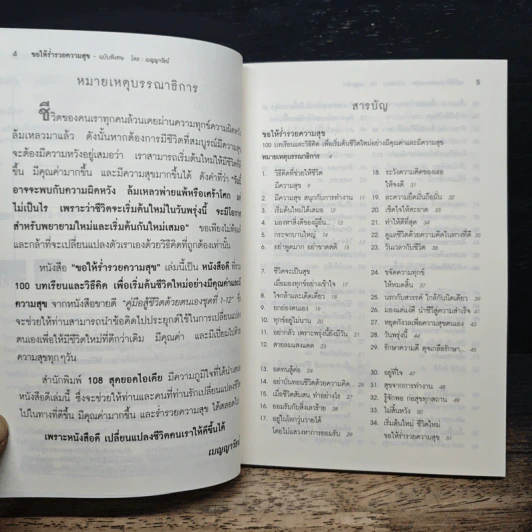 4 ขอให้ร่ำรวยความสุข - ฉบับพิเศษ โดย : เมญญาธิศน์
หมายเหตุบรรณาธิการ
ชีวิตของคนเราทุกคนล้วนเคยผ่านความทุกข์ความผิดหวัง
ล้มเหลวมาแล้ว ดังนั้นหากต้องการมีชีวิตที่สมบูรณ์มีความสุข
จะต้องมีความหวังอยู่เสมอว่า เราสามารถเริ่มต้นใหม่ให้มีชีวิตที่ดี
ขึ้น มีคุณค่าขึ้น และมีความสุขมากขึ้นได้ ดังคำที่ว่า
อาจจะพบกับความผิดหวัง ล้มเหลวพ่ายแพ้หรือเศร้าโศก แต่
ไม่เป็นไร เพราะว่าชีวิตจะเริ่มต้นใหม่ในวันพรุ่งนี้ จะมีโอกาส
สำหรับพยายามใหม่และเริ่มต้นกันใหม่เสมอ" ขอเพียงไม่ท้อแท้
และกล้าที่จะเปลี่ยนแปลงตัวเราเองด้วยวิธีคิดที่ถูกต้องเท่านั้น
หนังสือ "ขอให้ร่ำรวยความสุข" เล่มนี้เป็น หนังสือดี ที่รวม
100 บทเรียนและวิธีคิด เพื่อเริ่มต้นชีวิตใหม่อย่างมีคุณค่าและมี
ความสุข จากหนังสือขายดี "คู่มือสู้ชีวิตด้วยตนเองชุดที่ 1-12"
จะช่วยให้ท่านสามารถนำข้อคิดไปประยุกต์ใช้ในการเปลี่ยนแปลง
ตนเองเพื่อให้มีชีวิตใหม่ที่ดีกว่าเดิม มีคุณค่า และมีเปี่ยมไปด้วย
ความสุขทุกๆวัน
สำนักพิมพ์ 108 สุดยอดไอเดีย มีความภูมิใจที่ได้นำเสนอ
หนังสือดีเล่มนี้ ซึ่งจะช่วยให้ท่านและคนที่ท่านรักเปลี่ยนแปลง
ไปในทางที่ดีขึ้น มีคุณค่ามากขึ้น และร่ำรวยความสุข ได้ตลอดไป
เพราะหนังสือดี เปลี่ยนแปลงชีวิตคนเราให้ดีขึ้นได้
5
สารบัญ
ขอให้ร่ำรวยความสุข
100 บทเรียนและวิธีคิด เพื่อเริ่มต้นชีวิตใหม่อย่างมีคุณค่าและมีความสุข
หมายเหตุบรรณาธิการ 4
1. วิธีคิดที่ช่วยให้ชีวิต
มีความสุข 9
2. มีความสุข สนุกกับการทำงาน
3. เริ่มต้นใหม่ได้เสมอ
4. มองหาสิ่งดีของผู้อื่น
5. กระจกบานใหญ่
6. อย่าพูดมาก อย่าขาดสติ
7. ชีวิตจะเป็นสุข
เมื่อมองทุกอย่างเข้าใจ
8. ใจกล้าและเด็ดเดี่ยว
9. ยกย่องตนเอง
10. ทุกข์อยู่ไม่นาน
11. อย่ากลัว เพราะพรุ่งนี้ยังมีวัน
12. ตายลงแสงแดด
13. จงทนสู้ต่อ
14. อย่าบั่นทอนชีวิตด้วยความคิด...
15. เมื่อชีวิตสับสน ทำอย่างไร
16. ยอมรับกับสิ่งเลวร้าย
17. อยู่ในโลกวุ่นวายได้
โดยไม่แสวงหาการยอมรับ
18. ระวังความคิดของเธอ
ให้จงดี
19. ละความยึดมั่นถือมั่น
20. เช็ดใจให้สะอาด
21. ทำให้ดีที่สุด
22. ดูแลชีวิตด้วยความคิดในทางที่ดี
23. วันเวลากับชีวิต
24. ขจัดความทุกข์
ให้หมดสิ้น
25. นรกกับสวรรค์ ใกล้กันนิดเดียว
26. มองแต่แง่ดี นำชีวิตสู่ความสำเร็จ
27. หยุดกังวลเพื่อความสุขตนเอง
28. วันพรุ่งนี้
29. รักษาความดี ดุจเกลือรักษา...
30. อยู่ที่ใจ
31. สุขจากการทำงาน
32. รู้จักพอ ก่อสุขทุกสถาน
33. ไม่สิ้นหวัง
34. เริ่มต้นใหม่ ชีวิตใหม่
ขอให้ร่ำรวยความสุข